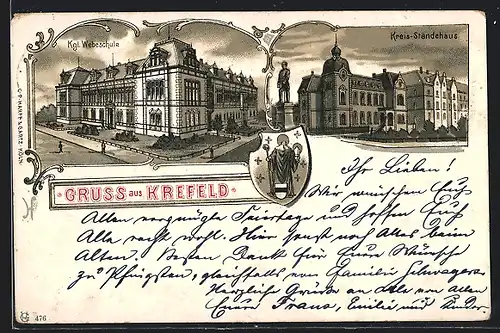 Kgl. Webeschule
Kreis-Ständehaus.
GRUSS aus KREFELD
Ihr Lieben!
Wir wünschen Euch
Allen vergnügte Feiertage und hoffen Euch
Alle recht wohl. Hier sonst noch Alles beim
Alten. Besten Dank für Eure Wünsche
zu Pfingsten, gleichfalls von Familie
Herzlich Grüße an Alle von allen
Eure Franz, Emilie und Kinder
476